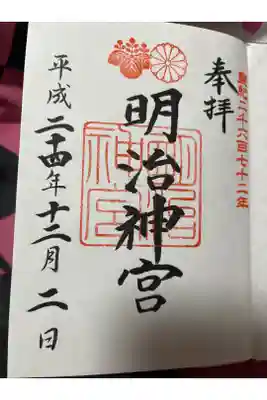 皇紀二千六百七十二年
奉拝
明治神宮
明治
神宮
平成二十四年十二月二日